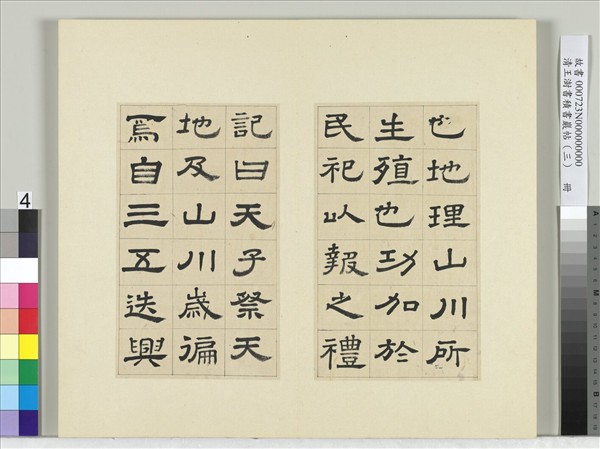 故書 000723N000000000
清王澍書積書巖帖（三）　冊
也地理山川所
生殖也功加於
民祀以報之禮
記曰天子祭天
地及山川歲徧
焉自三五迭興
4
A
M
B